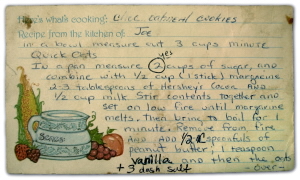 Here's what's cooking: Quick Oatmeal Cookies
Recipe from the kitchen of: Joe
in a bowl measure out 3 cups minute
Quick Oats yes
In a pan measure 2 cups of sugar, and
combine with 1/2 cup (1 stick) margarine
2-3 tablespoons of Hershey's Cocoa. And
1/2 cup milk Stir contents together and
set on low fire until margarine
melts. Then bring to boil for 1
minute. Remove from fire
And add 1/2 c spoonfuls of
peanut butter, 1 teaspoon
vanilla and then the oats
+ 3 dash salt over→
SONGS!